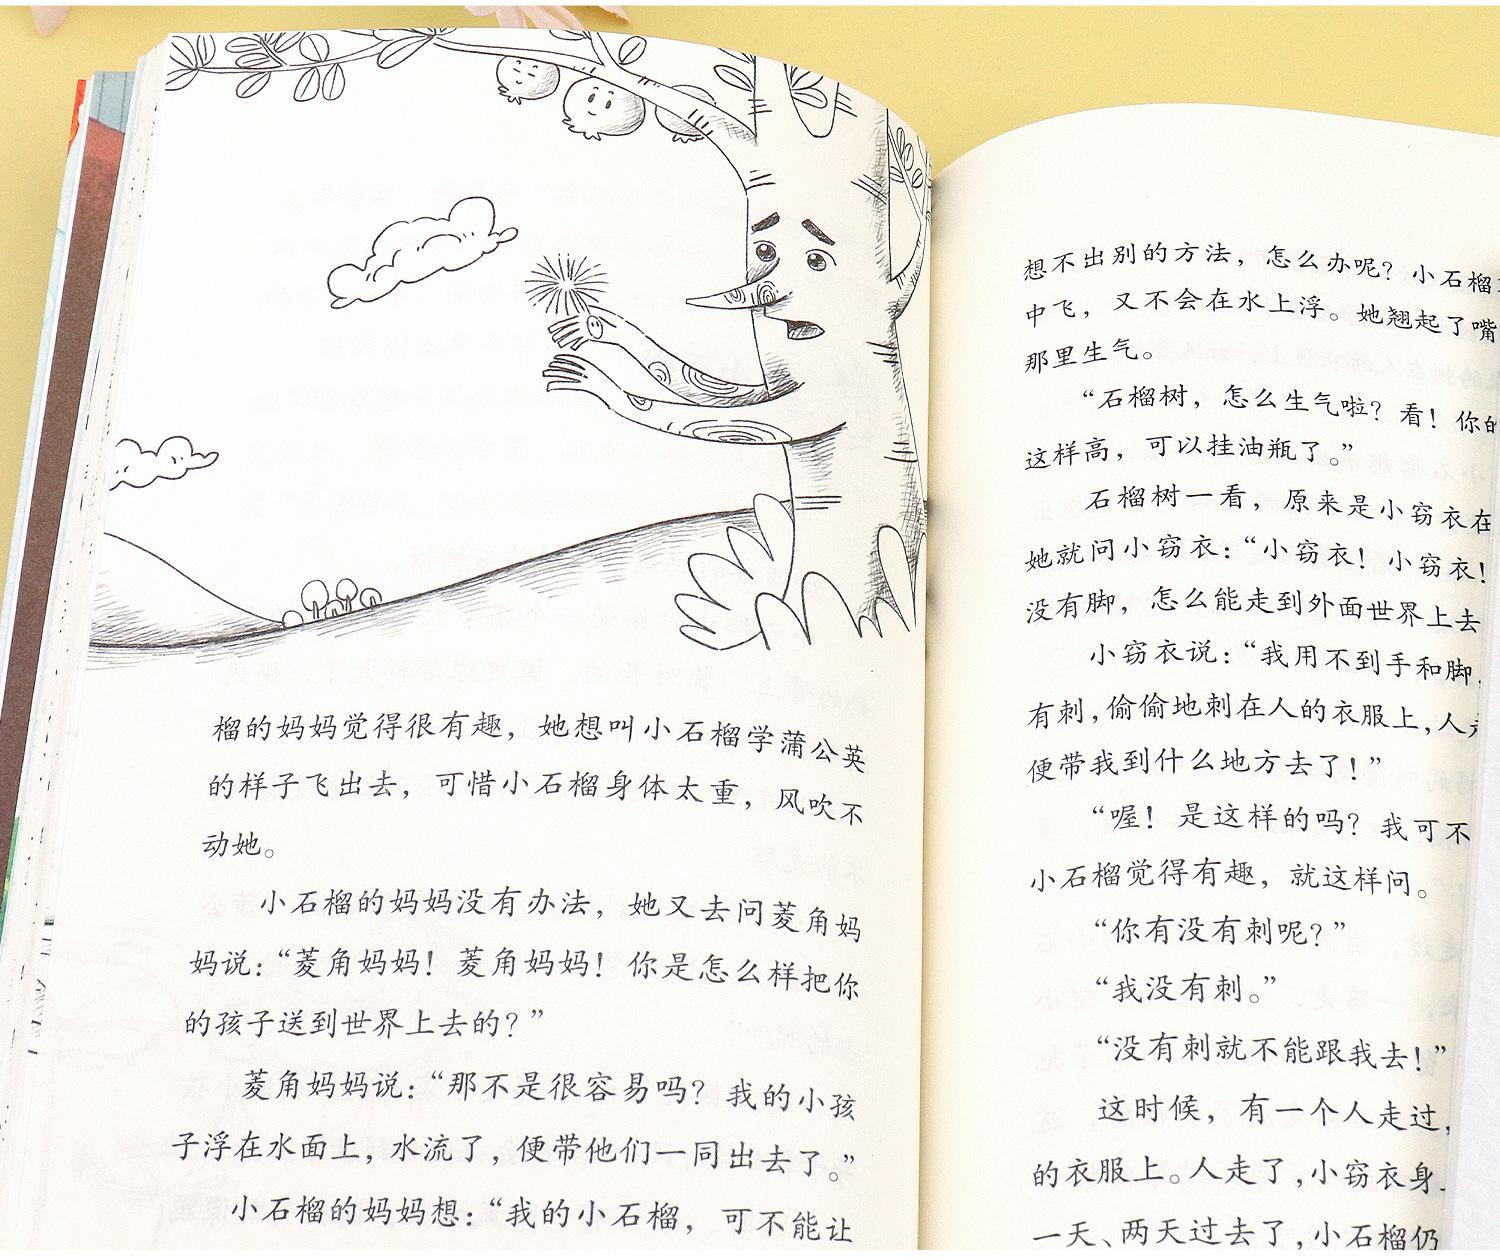 榴的妈妈觉得很有趣，她想叫小石榴学蒲公英
的样子飞出去，可惜小石榴身体太重，风吹不
动她。
小石榴的妈妈没有办法，她又去问菱角妈
妈说：“菱角妈妈！菱角妈妈！你是怎么样把你
的孩子送到世界上去的？”
菱角妈妈说：“那不是很容易吗？我的小孩
子浮在水面上，水流了，便带他们一同出去了。”
小石榴的妈妈想：“我的小石榴，可不能让
想不出别的方法，怎么办呢？小石榴
中飞，又不会在水上浮。她翘起了嘴
那里生气。
“石榴树，怎么生气啦？看！你的
这样高，可以挂油瓶了。”
石榴树一看，原来是小窃衣在
她就问小窃衣：“小窃衣！小窃衣！
没有脚，怎么能走到外面世界上去
小窃衣说：“我用不到手和脚，
有刺，偷偷地刺在人的衣服上，人
便带我到什么地方去了！”
“喔！是这样的吗？我可不
小石榴觉得有趣，就这样问。
“你有没有刺呢？”
“我没有刺。”
“没有刺就不能跟我去！”
这时候，有一个人走过，
的衣服上。人走了，小窃衣身
一天、两天过去了，小石榴仍